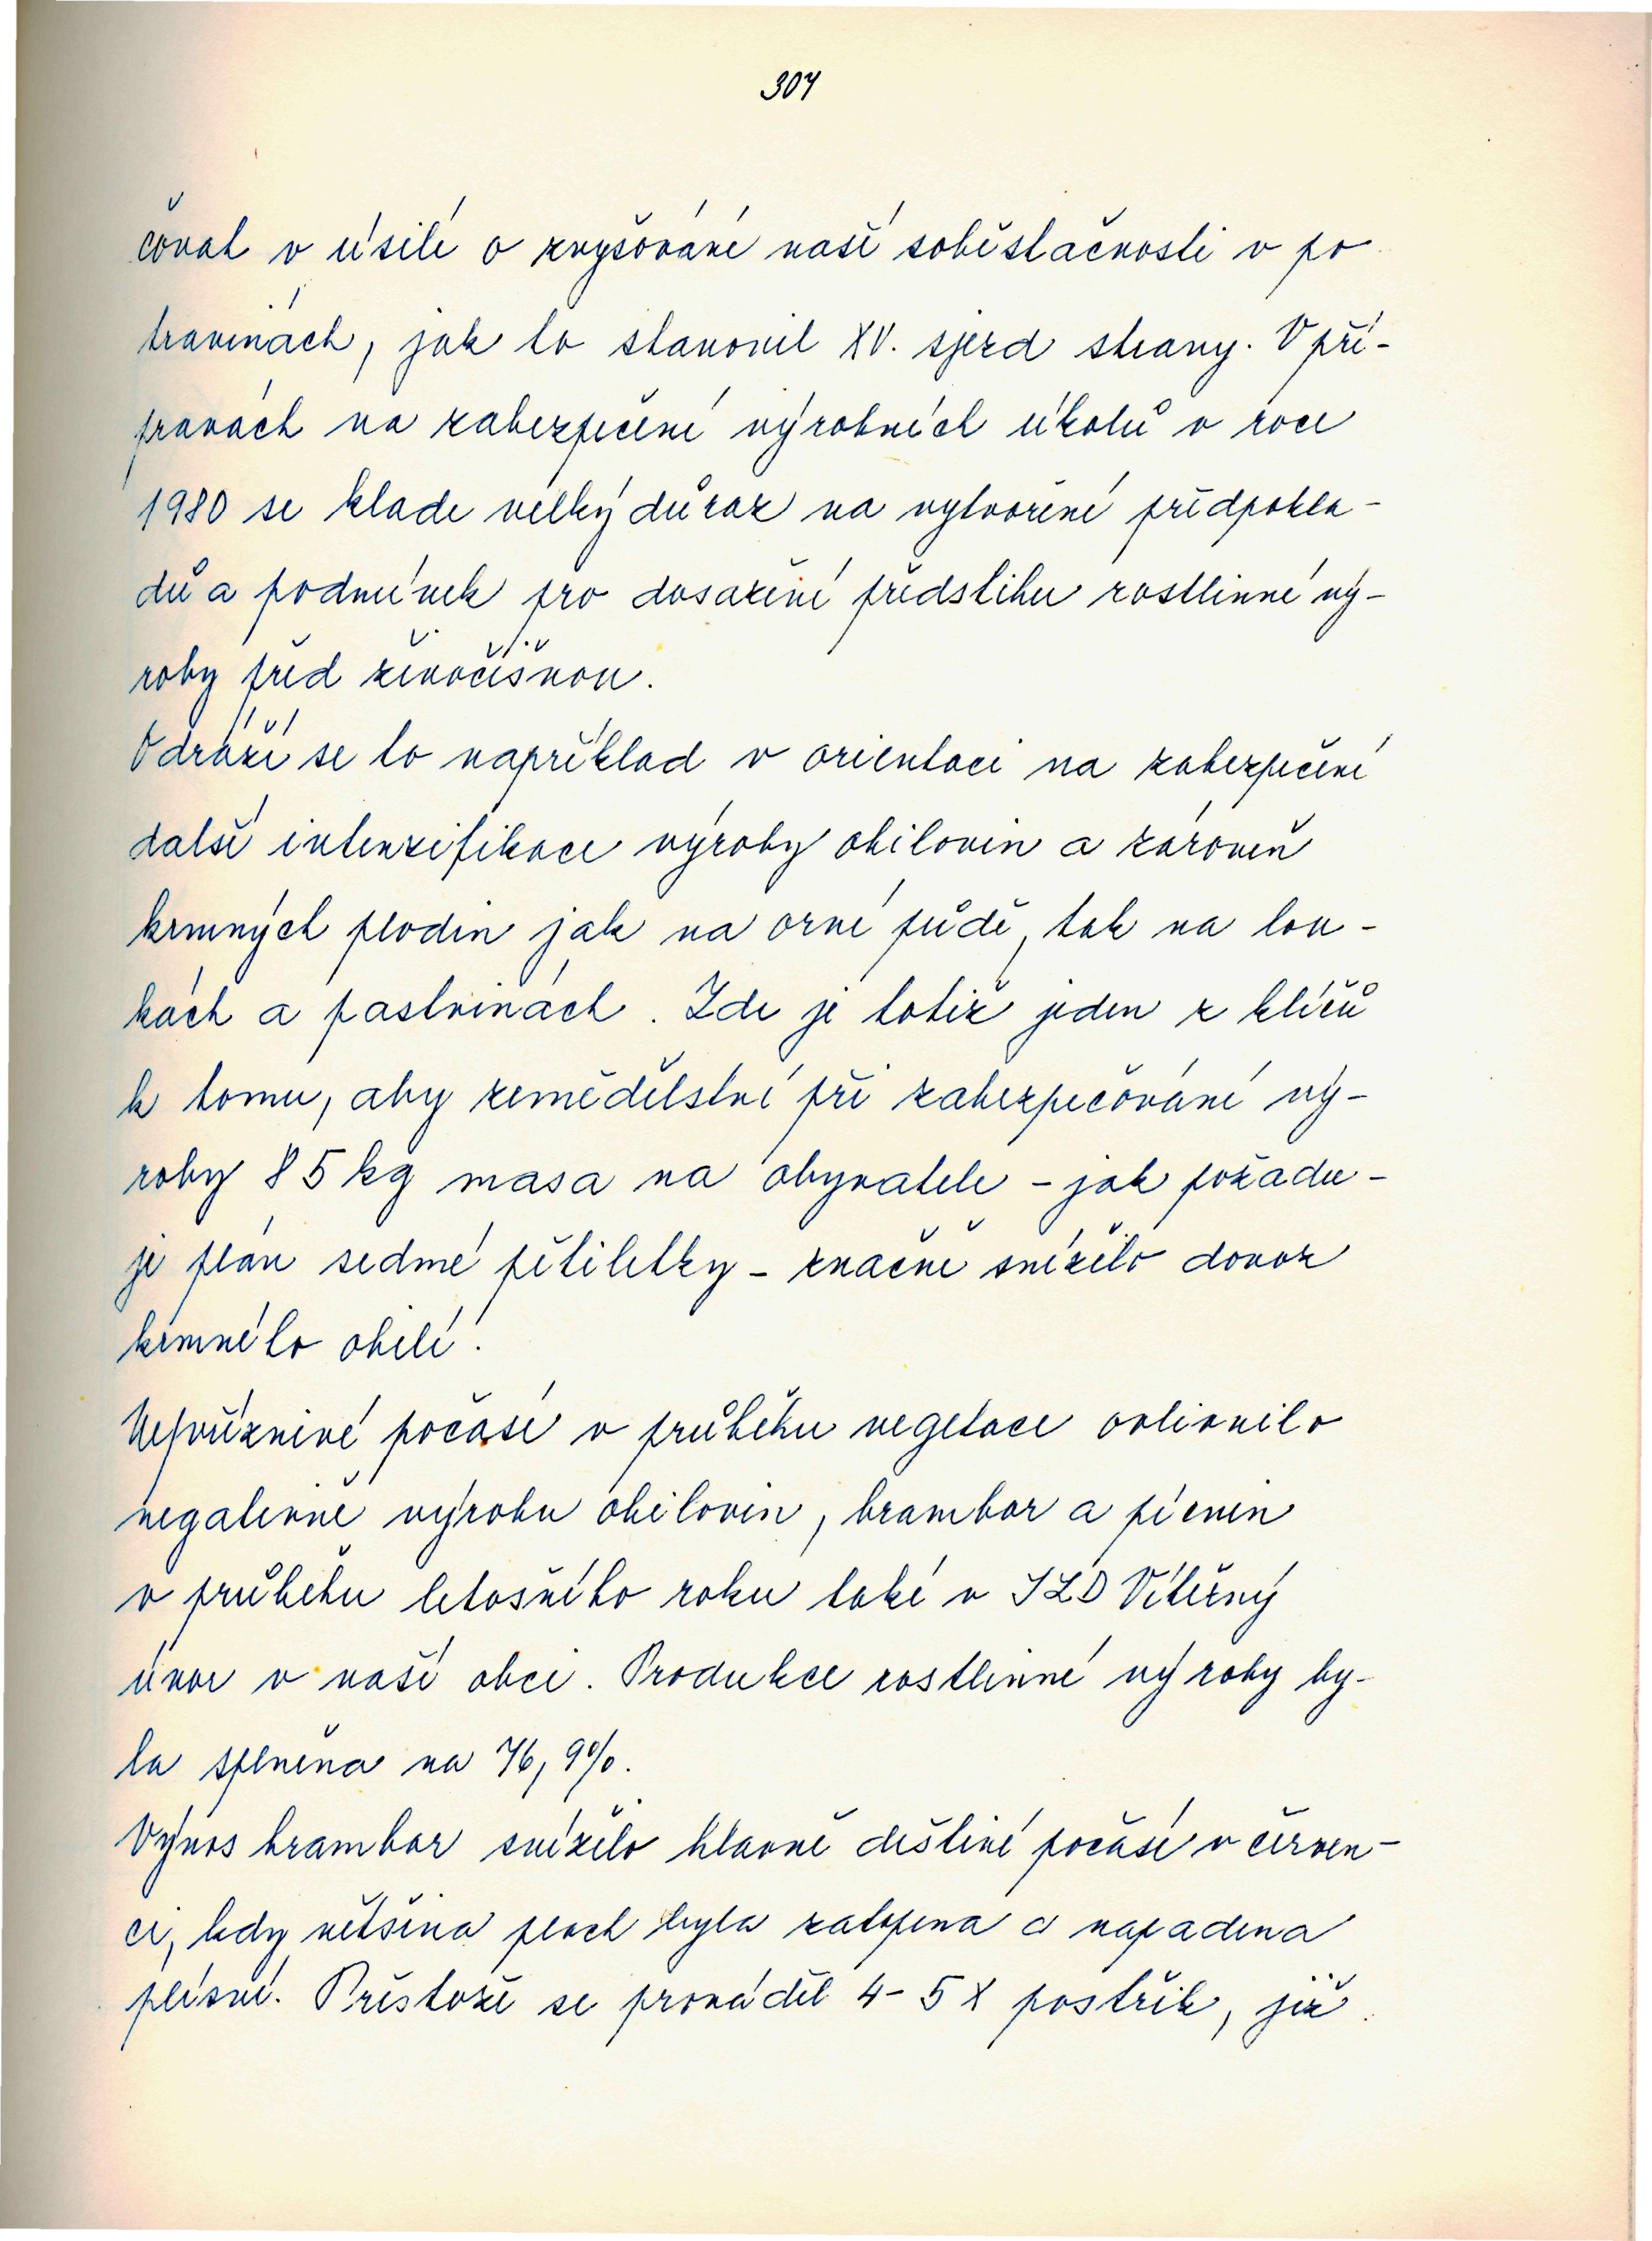 307
čovat v úsilí o zvyšování naší soběstačnosti v po
travinách, jak to stanovil XV. sjezd strany. V pří-
pravách na zabezpečení výrobních úkolů v roce
1980 se klade velký důraz na vytvoření předpokla-
dů a podmínek pro dosažení předstihu rostlinné vý-
roby před živočišnou.
Odráží se to například v orientaci na zabezpečení
další intenzifikace výroby obilovin a zároveň
krmných plodin jak na orné půdě, tak na lou-
kách a pastvinách. Zde je totiž jeden z klíčů
k tomu, aby zemědělství při zabezpečování vý-
roby 85 kg masa na obyvatele - jak požadu-
je plán sedmé pětiletky - značně snížilo dovoz
krmného obilí.
Nepříznivé počasí v průběhu vegetace ovlivnilo
negativně výrobu obilovin, brambor a pícnin
v průběhu letošního roku také v JZD Vítězný
únor v naší obci. Produkce rostlinné výroby by-
la splněna na 76,9%.
Výnos brambor snížilo hlavně deštivé počasí v červen-
ci, kdy většina ploch byla zatopena a napadena
plísní. Přestože se prováděl 4-5 X postřik, již